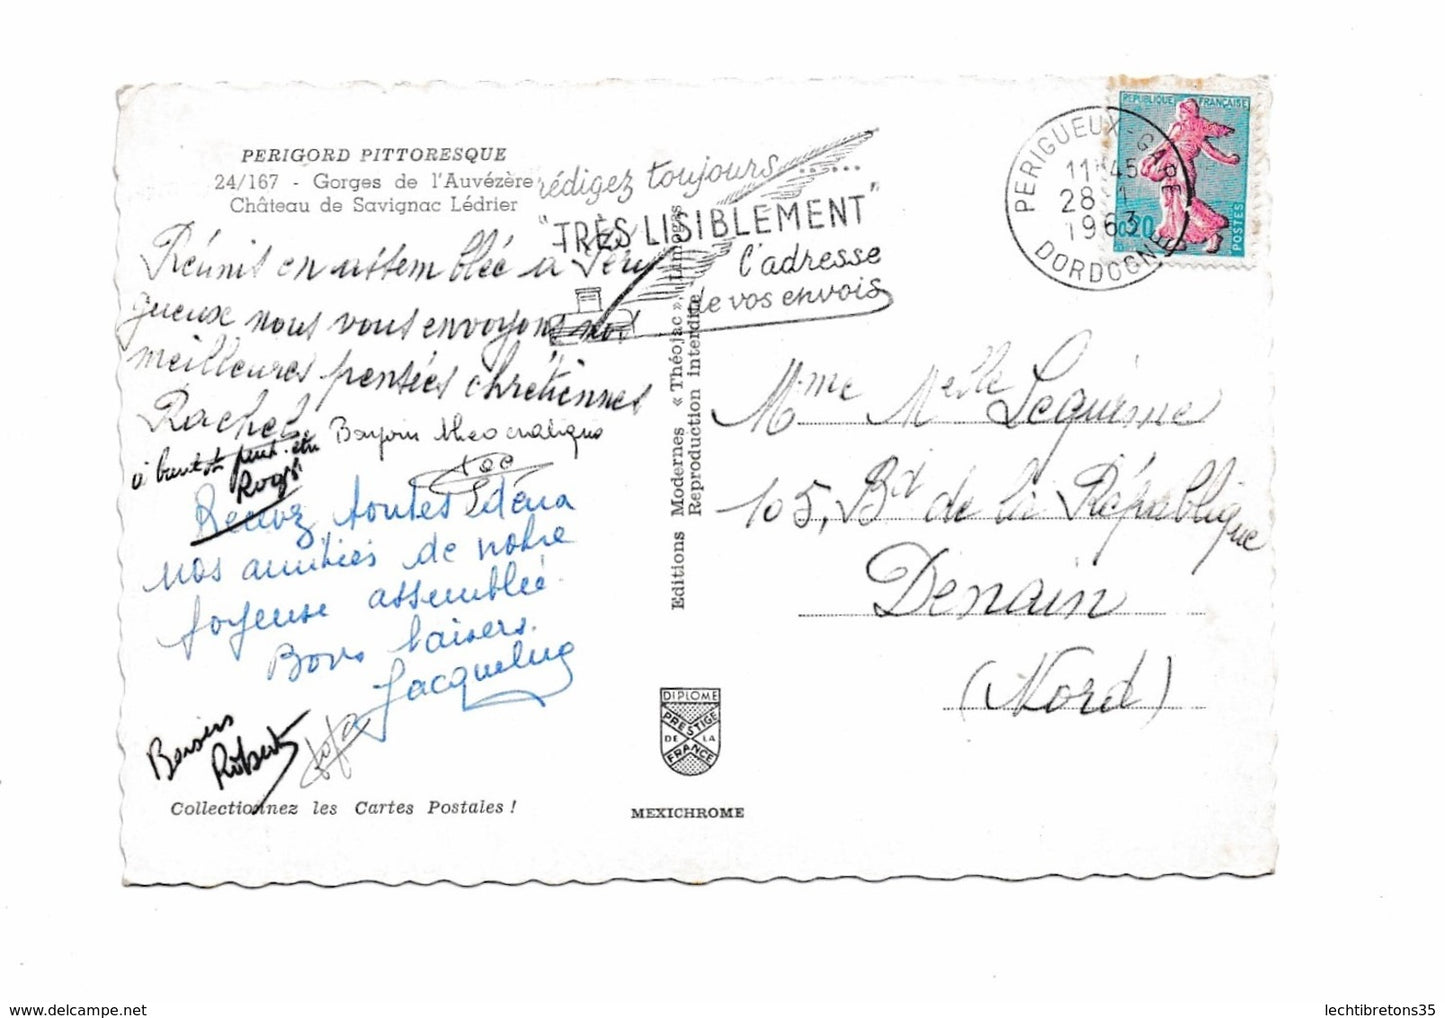 PERIGORD PITTORESQUE
24/167 - Gorges de l'Auvézère
Château de Savignac Lédrier
rédigez toujours......
"TRÈS LISIBLEMENT"
l'adresse
de vos envois
PERIGUEUX-GARE
11H45
28-1
1963
DORDOGNE
REPUBLIQUE FRANÇAISE
0,20
POSTES
Réunis en assemblée a Péri
gueuse nous vous envoyons nos
meilleures pensées chrétiennes
Rachel.
Bonjour théocratique
à bientôt peut-être
Recevez toutes deux
nos amitiés de notre
joyeuse assemblée.
Bons baisers.
Jacqueline
Baisers
Robert
Collectionnez les Cartes Postales !
Editions Modernes « Théojac », Limoges
Reproduction interdite
DIPLOME
PRESTIGE
DE LA
FRANCE
MEXICHROME
Mme Melle Lequime
105, Bd de la République
Denain
(Nord)
www.delcampe.net
lechtibretons35